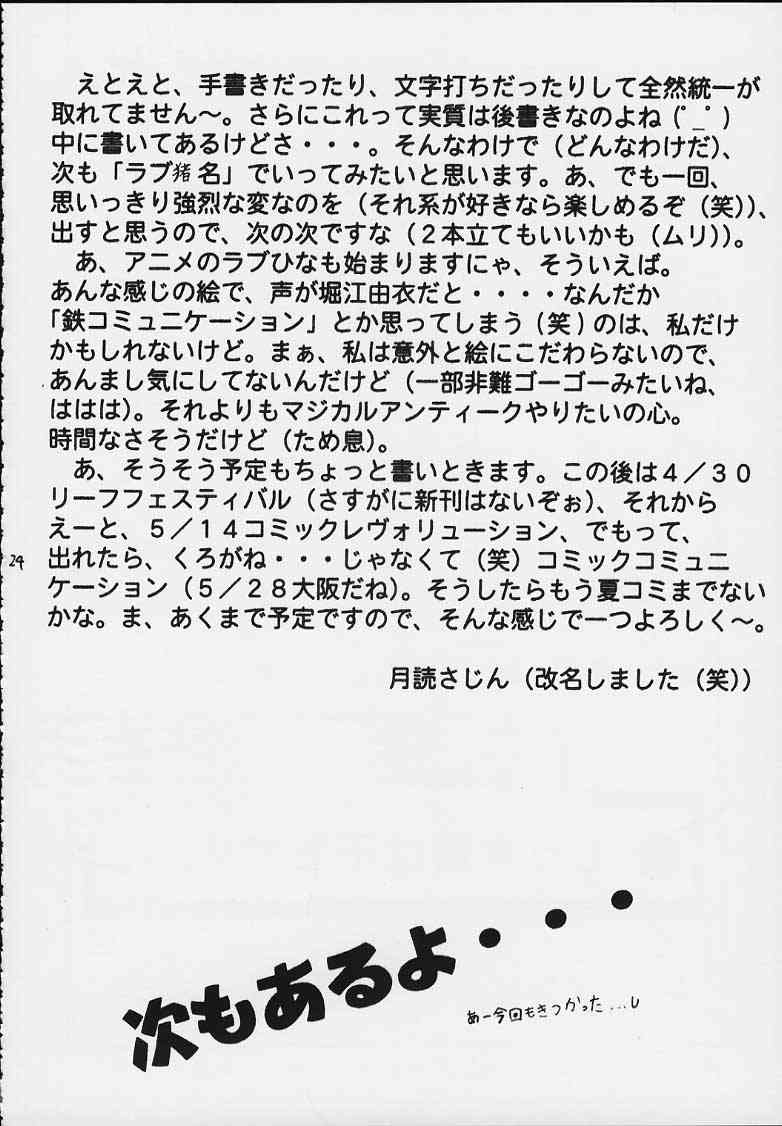 えとえと、手書きだったり、文字打ちだったりして全然統一が
取れてません～。さらにこれって実質は後書きなのよね(ﾟ_ﾟ)
中に書いてあるけどさ・・・。そんなわけで（どんなわけだ）、
次も「ラブ猪名」でいってみたいと思います。あ、でも一回、
思いっきり強烈な変なのを（それ系が好きなら楽しめるぞ（笑））、
出すと思うので、次の次ですな（２本立てもいいかも（ムリ））。
あ、アニメのラブひなも始まりますにゃ、そういえば。
あんな感じの絵で、声が堀江由衣だと・・・・なんだか
「鉄コミュニケーション」とか思ってしまう（笑）のは、私だけ
かもしれないけど。まぁ、私は意外と絵にこだわらないので、
あんまし気にしてないんだけど（一部非難ゴーゴーみたいね、
ははは）。それよりもマジカルアンティークやりたいの心。
時間なさそうだけど（ため息）。
あ、そうそう予定もちょっと書いときます。この後は４／３０
リーフフェスティバル（さすがに新刊はないぞぉ）、それから
えーと、５／１４コミックレヴォリューション、でもって、
出れたら、くろがね・・・じゃなくて（笑）コミックコミュニ
ケーション（５／２８大阪だね）。そうしたらもう夏コミまでない
かな。ま、あくまで予定ですので、そんな感じで一つよろしく～。
月読さじん（改名しました（笑））
24
次もあるよ・・・
あー今回もきつかった…し